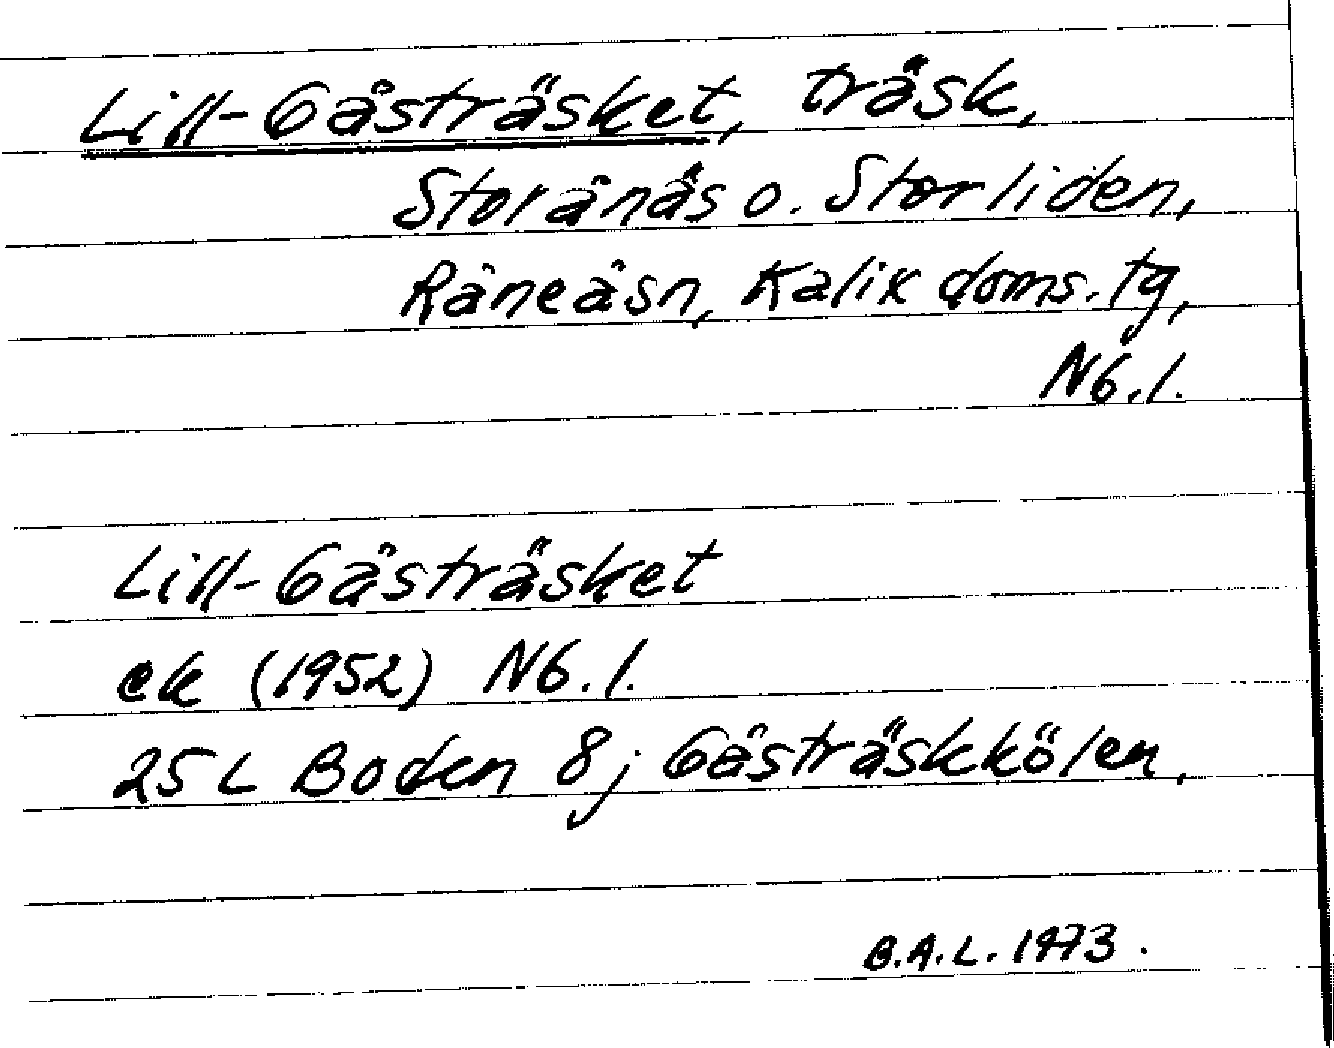 Lill-Gåsträsket, träsk,
Storånäs o. Storliden,
Råneåsn, Kalix doms. tg,
Nb. l.
Lill-Gåsträsket
ek (1952) Nb. l.
25 L Boden 8j Gåsträskkölen.
B.A.L. 1973.